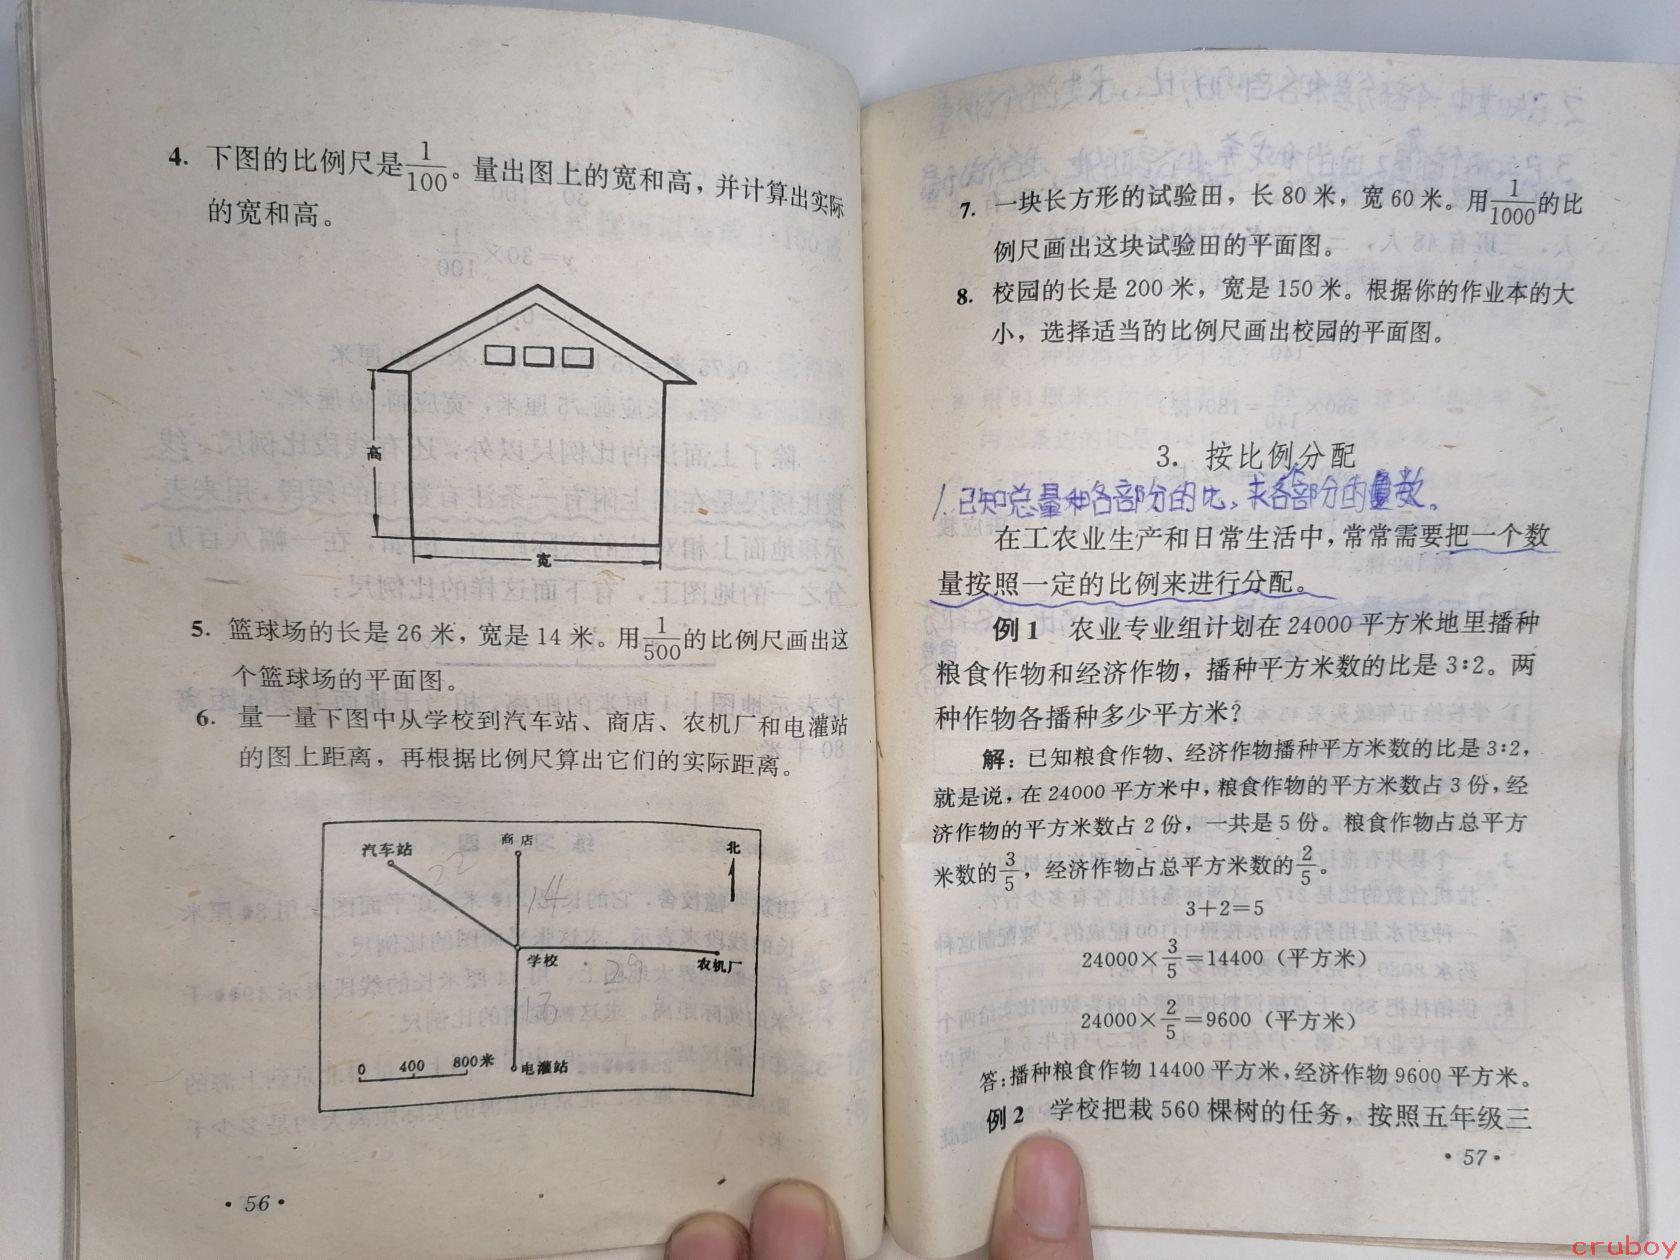 4. 下图的比例尺是1/100。量出图上的宽和高，并计算出实际
的宽和高。
高
宽
5. 篮球场的长是26米，宽是14米。用1/500的比例尺画出这
个篮球场的平面图。
6. 量一量下图中从学校到汽车站、商店、农机厂和电灌站
的图上距离，再根据比例尺算出它们的实际距离。
汽车站
商店
北
22
14
学校
农机厂
29
13
0 400 800米
电灌站
·56·
7. 一块长方形的试验田，长80米，宽60米。用1/1000的比
例尺画出这块试验田的平面图。
8. 校园的长是200米，宽是150米。根据你的作业本的大
小，选择适当的比例尺画出校园的平面图。
3. 按比例分配
1.已知总量和各部分的比，求各部分的量数。
在工农业生产和日常生活中，常常需要把一个数
量按照一定的比例来进行分配。
例1 农业专业组计划在24000平方米地里播种
粮食作物和经济作物，播种平方米数的比是3∶2。两
种作物各播种多少平方米？
解：已知粮食作物、经济作物播种平方米数的比是3∶2，
就是说，在24000平方米中，粮食作物的平方米数占3份，经
济作物的平方米数占2份，一共是5份。粮食作物占总平方
米数的3/5，经济作物占总平方米数的2/5。
3+2=5
24000×3/5=14400（平方米）
24000×2/5=9600（平方米）
答：播种粮食作物14400平方米，经济作物9600平方米。
例2 学校把栽560棵树的任务，按照五年级三
·57·
cruboy